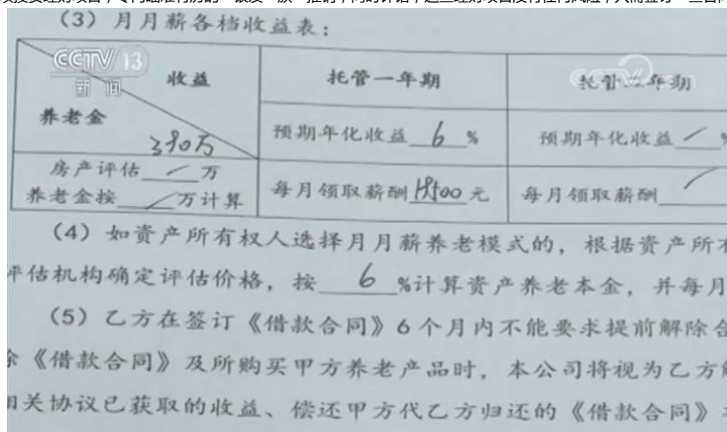 (3) 月月薪各档收益表：
CCTV 13
新闻
收益
养老金
托管一年期
托管二年期
390万
预期年化收益 6 %
预期年化收益
房产评估 万
养老金按 万计算
每月领取薪酬 18500 元
每月领取薪酬
(4) 如资产所有权人选择月月薪养老模式的，根据资产所有
评估机构确定评估价格，按 6 %计算资产养老本金，并每月
(5) 乙方在签订《借款合同》6个月内不能要求提前解除合
除《借款合同》及所购买甲方养老产品时，本公司将视为乙方解
相关协议已获取的收益、偿还甲方代乙方归还的《借款合同》